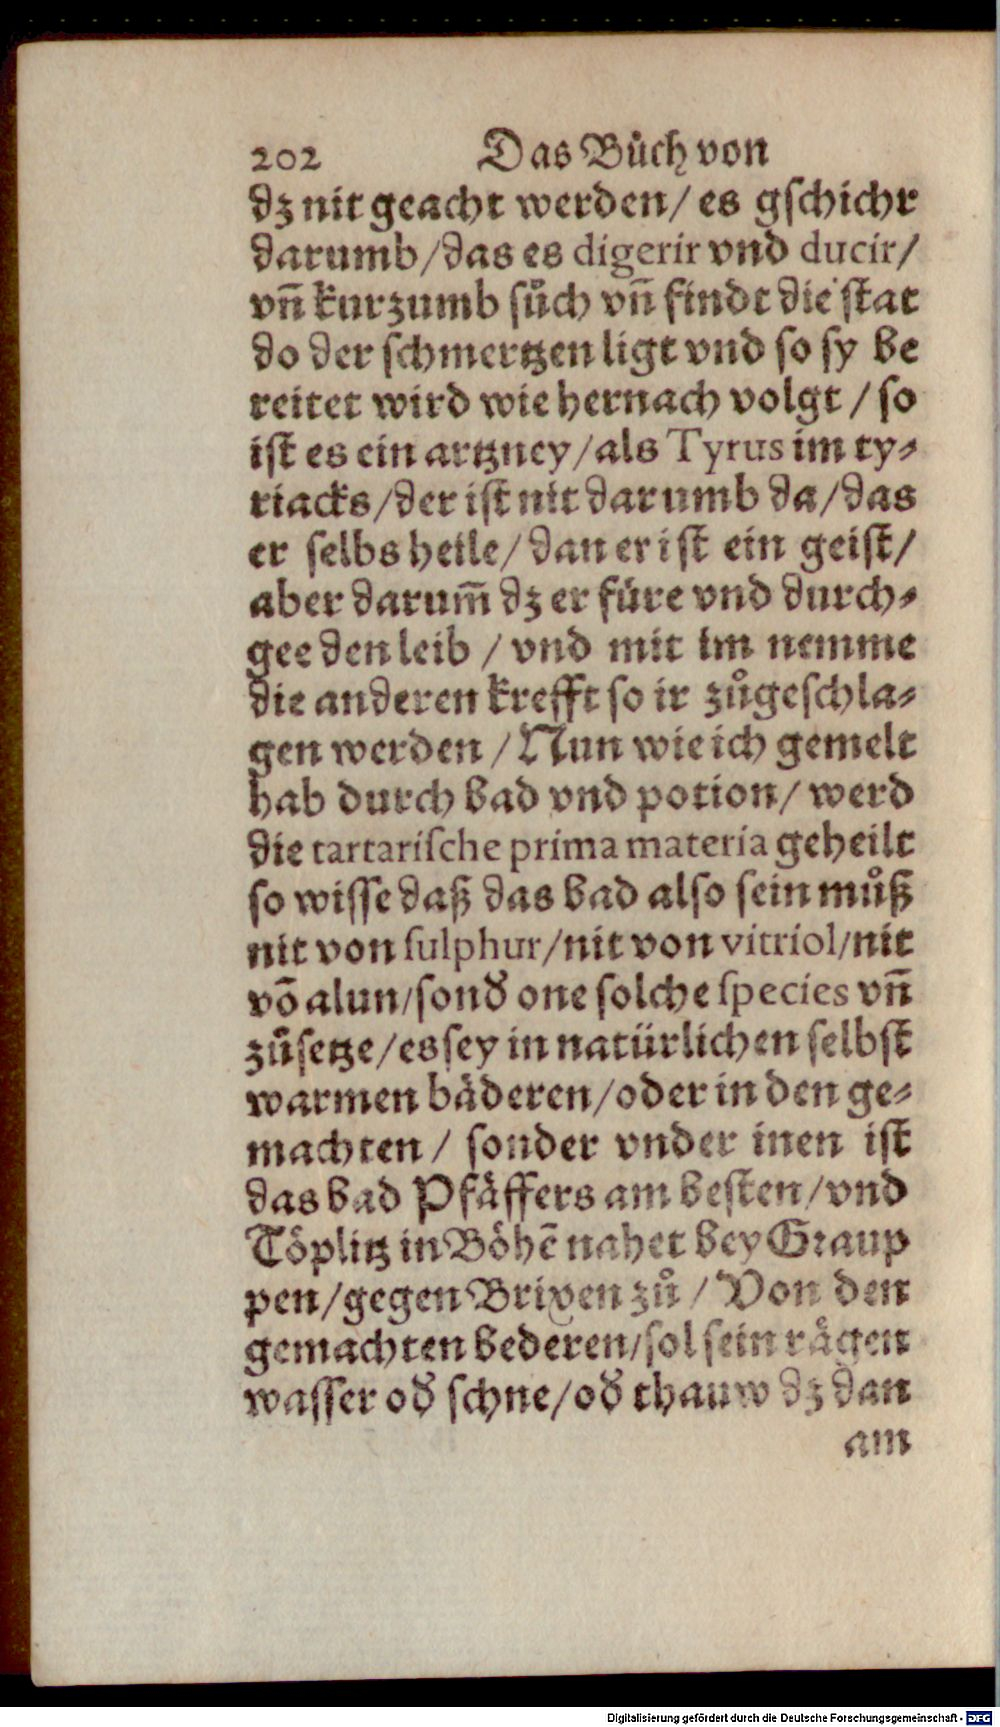 202 Das Bůch von
dz nit geacht werden/ es gschicht
darumb/das es digerir vnd ducir/
vñ kurzumb sůch vñ findt die stat
do der schmertzen ligt vnd so sy be
reitet wird wie hernach volgt / so
ist es ein artzney/als Tyrus im ty⸗
riacks/der ist nit darumb da/das
er selbs heile/ dan er ist ein geist/
aber darum̃ dz er füre vnd durch⸗
gee den leib / vnd mit im nemme
die anderen krefft so ir zůgeschla⸗
gen werden / Nun wie ich gemelt
hab durch bad vnd potion/ werd
die tartarische prima materia geheilt
so wisse daß das bad also sein můß
nit von sulphur/nit von vitriol/nit
võ alun/sond̛ one solche species vñ
zůsetze/es sey in natürlichen selbst
warmen bäderen/oder in den ge⸗
machten / sonder vnder inen ist
das bad Pfäffers am besten/vnd
Töplitz in Böhẽ nahet bey Graup
pen/gegen Brixen zů / Von den
gemachten bederen/sol sein rägen
wasser od̛ schne/od̛ thauw dz dan
am
Digitalisierung gefördert durch die Deutsche Forschungsgemeinschaft - DFG